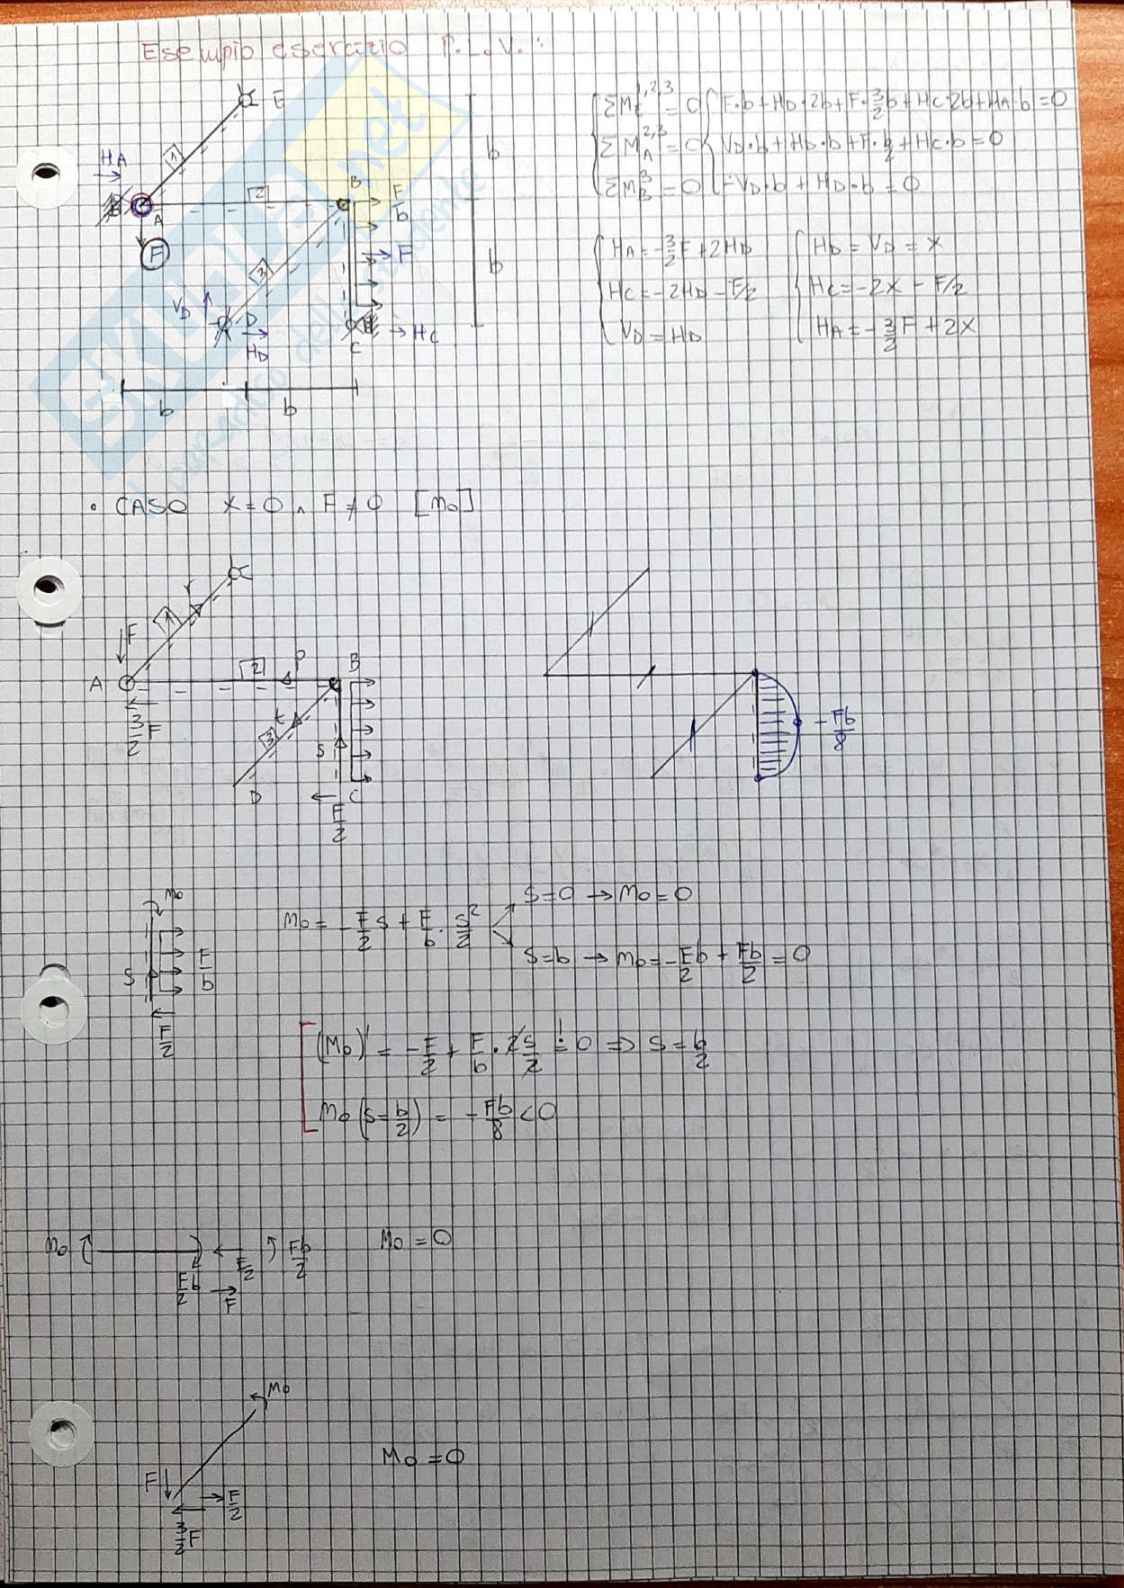 Esempio esercizio P.L.V.:
E
HA
1
2
A
B
F/b
F
F
b
b
3
VD
D
HD
C
HC
b b
ΣM_E^{1,2,3} = 0 { F·b + HD·2b + F·3/2b + HC·2b + HA·b = 0
ΣM_A^{2,3} = 0 { VD·b + HD·b + F·b/2 + HC·b = 0
ΣM_B^3 = 0 { -VD·b + HD·b = 0
{ HA = -3/2F + 2HD
HC = -2HD - F/2
VD = HD
{ HD = VD = X
HC = -2X - F/2
HA = -3/2 F + 2X
• CASO X = 0 ∧ F ≠ 0 [M0]
r
F
1
A
2
P
B
3/2 F
t
3
S
D
C
F/2
-Fb/8
M0
S
F/b
F/2
M0 = -F/2 S + F/b · S²/2
S=0 → M0 = 0
S=b → M0 = -Fb/2 + Fb/2 = 0
(M0)' = -F/2 + F/b · 2S/2 = 0 ⇒ S = b/2
M0 (S=b/2) = -Fb/8 < 0
M0
Fb/2
F/2
F
Fb/2
M0 = 0
M0
F
F/2
3/2 F
M0 = 0
SKUOLA.net